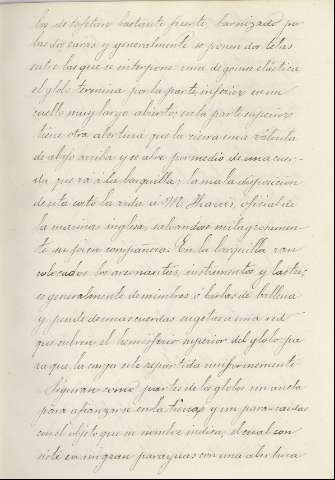 los de tafetan bastante fuerte, barnizado por
las dos caras y generalmente se ponen dos telas
entre las que se interpone una de goma elástica
el globo termina por la parte inferior en un
cuello muy largo abierto; en la parte superior
tiene otra abertura que la cierra una válvula
de abajo arriba y se abre por medio de una cuer-
da que va á la barquilla; la mala disposicion
de esta costó la vida á M. Harris, oficial de
la marina inglesa, salvandose milagrosamen-
te su joven compañera. En la barquilla van
colocados los aeronautas, instrumentos y lastre;
es generalmente de mimbres ó barbas de ballena
y pende de unas cuerdas sugetas á una red
que cubre el hemisferio superior del globo pa
ra que la carga este repartida uniformemente
Figuran como partes de los globos un ancla
para afianzarse en la tierra y un para-caidas
con el objeto que su nombre indica; el cual con
siste en un gran paraguas con una abertura